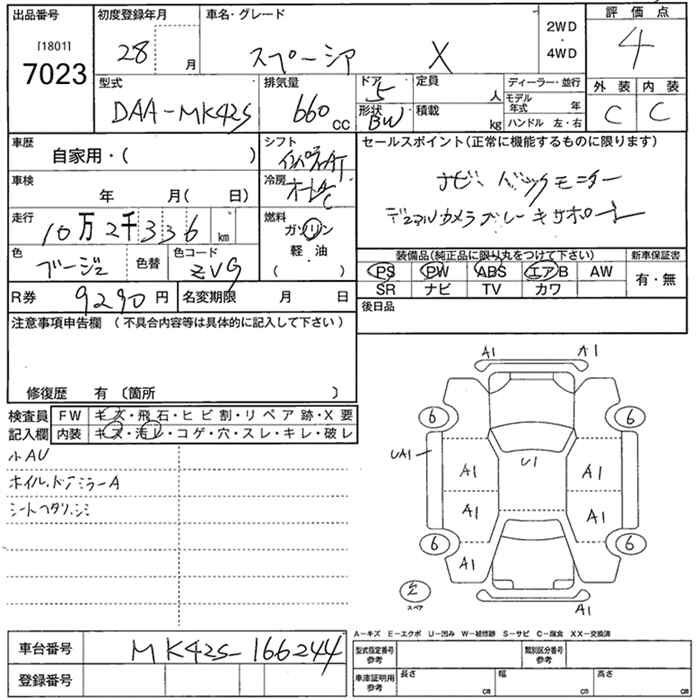 出品番号 初度登録年月 車名・グレード 2WD・4WD 評価点
[1801] 7023 28 月 スペーシア X 4
型式 排気量 ドア 定員 ディーラー・並行 外装 内装
DAA-MK42S 660 CC 5 人 モデル年式 年 C C
形状 BW 積載 kg ハンドル 左・右
車歴 シフト セールスポイント(正常に機能するものに限ります)
自家用・( ) インパネAT
車検 冷房 ナビ、バックモニター
年 月( 日) オートAC
走行 燃料 デュアルカメラブレーキサポート
10万2千336 km ガソリン
軽・油
( )
色 色替 色コード 装備品(純正品に限り丸をつけて下さい) 新車保証書
ベージュ ZVG PS PW ABS エアB AW 有・無
SR ナビ TV カワ
R券 9290円 名変期限 月 日 後日品
注意事項申告欄(不具合内容等は具体的に記入して下さい)
修復歴 有 〔箇所 〕
検査員 FW キズ・飛石・ヒビ割・リペア跡・X要
記入欄 内装 キズ・汚レ・コゲ・穴・スレ・キレ・破レ
小AU
ホイル、ドアミラーA
シートヘタリ、シミ
A1 A1
6 6
UA1 U1
A1 A1
A1 A1
6 6
A1
スペア A1
A-キズ E-エクボ U-凹み W-補修跡 S-サビ C-腐食 XX-交換済
車台番号 MK42S-166244 型式指定番号 参考 類別区分番号 参考
登録番号 車庫証明用 参考 長さ cm 幅 cm 高さ cm